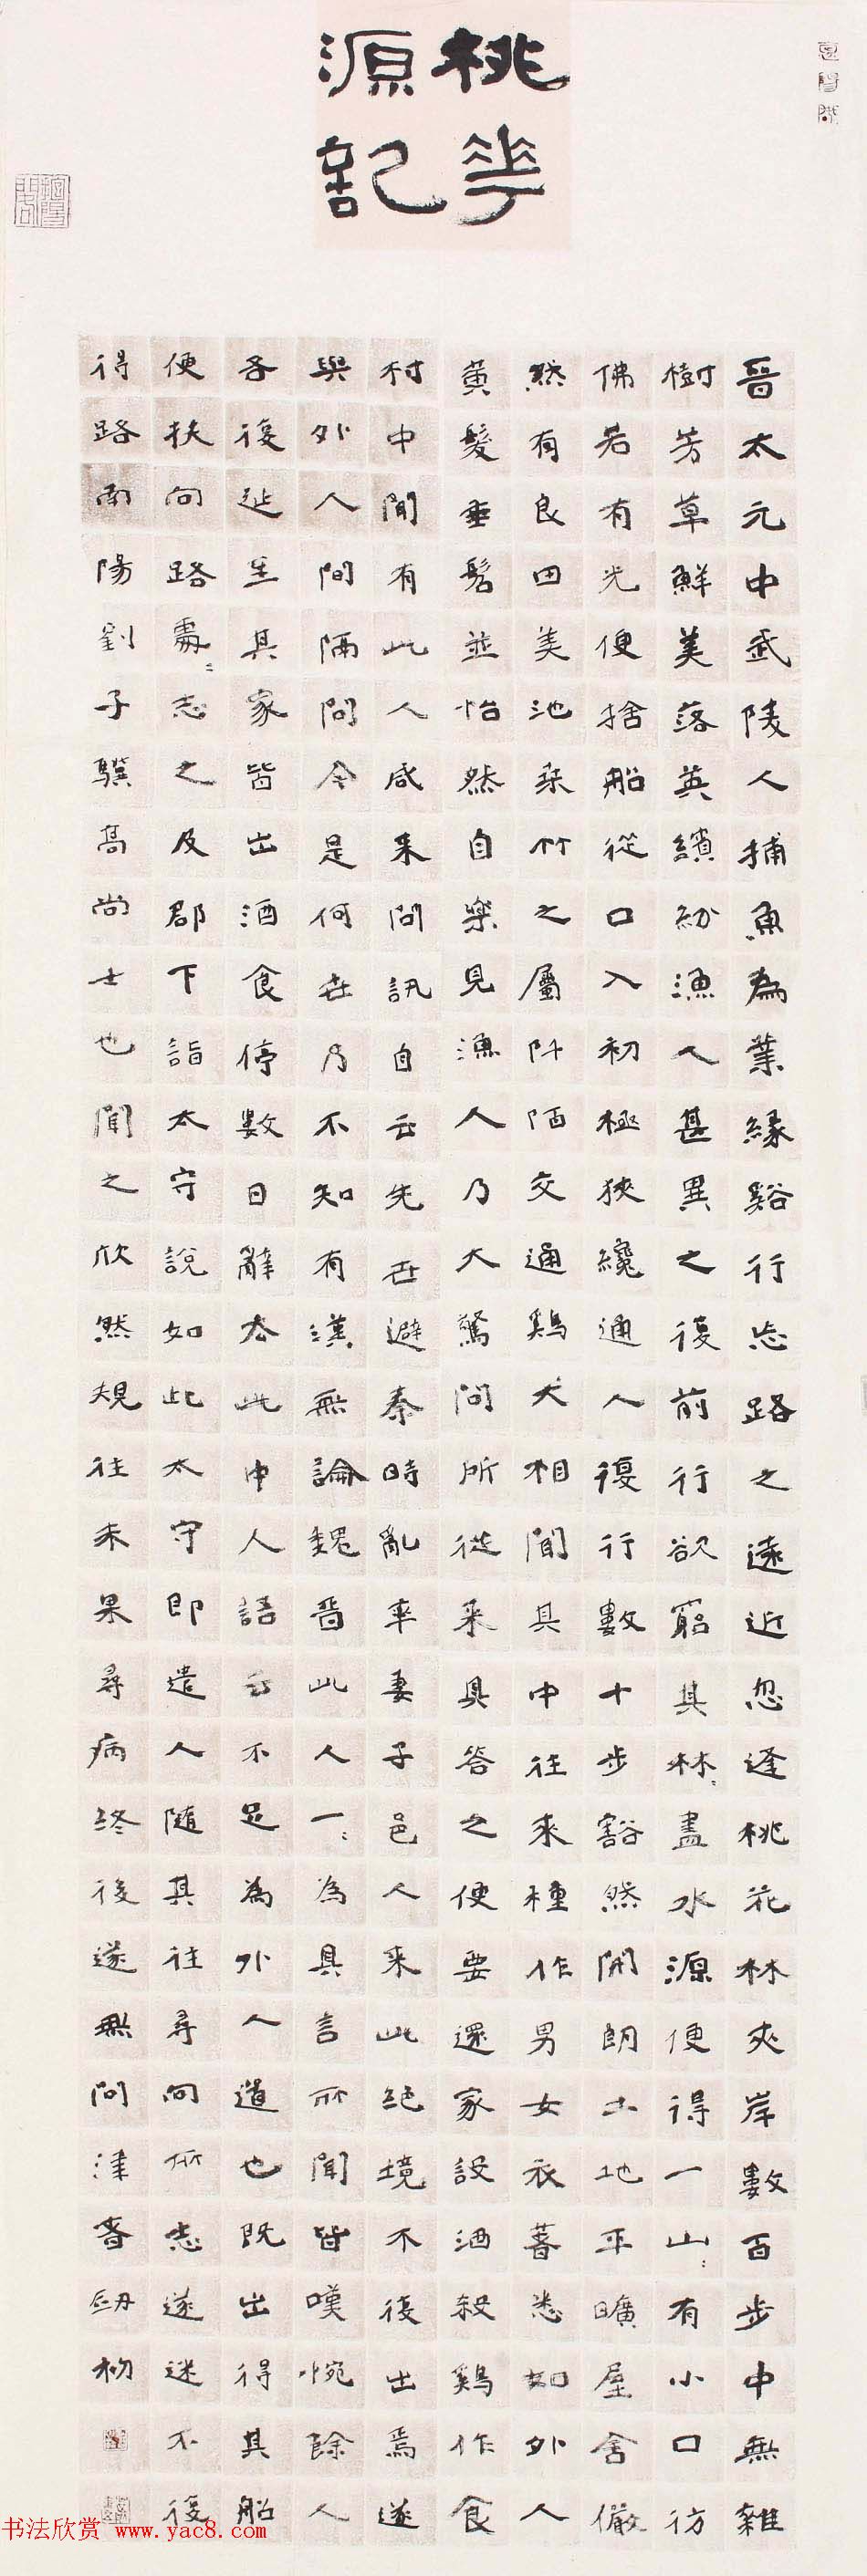 桃華
源記
晉太元中武陵人捕魚為業緣谿行忘路之遠近忽逢桃花林夾岸數百步中無雜
樹芳草鮮美落英繽紛漁人甚異之復前行欲窮其林〻盡水源便得一山〻有小口彷
佛若有光便捨船從口入初極狹纔通人復行數十步豁然開朗土地平曠屋舍儼
然有良田美池桑竹之屬阡陌交通鷄犬相聞其中往來種作男女衣著悉如外人
黃髮垂髫並怡然自樂見漁人乃大驚問所從來具答之便要還家設酒殺鷄作食
村中聞有此人咸来問訊自云先世避秦時亂率妻子邑人来此絕境不復出焉遂
與外人間隔問今是何世乃不知有漢無論魏晉此人一〻為具言所聞皆嘆惋餘人
各復延至其家皆出酒食停數日辭去此中人語云不足為外人道也既出得其船
便扶向路處〻志之及郡下詣太守說如此太守即遣人隨其往尋向所志遂迷不復
得路南陽劉子驥高尚士也聞之欣然規往未果尋病終後遂無問津者
书法欣赏 www.yac8.com